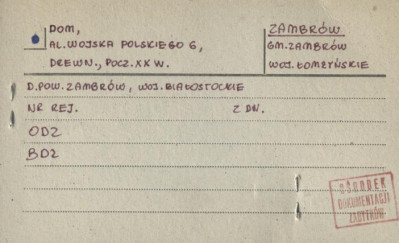 DOM,
AL. WOJSKA POLSKIEGO 6,
DREWN., POCZ. XX W.
ZAMBRÓW
GM. ZAMBRÓW
WOJ. ŁOMŻYŃSKIE
D. POW. ZAMBRÓW, WOJ. BIAŁOSTOCKIE
NR REJ. Z DN.
ODZ
BDZ
OŚRODEK
DOKUMENTACJI
ZABYTKÓW